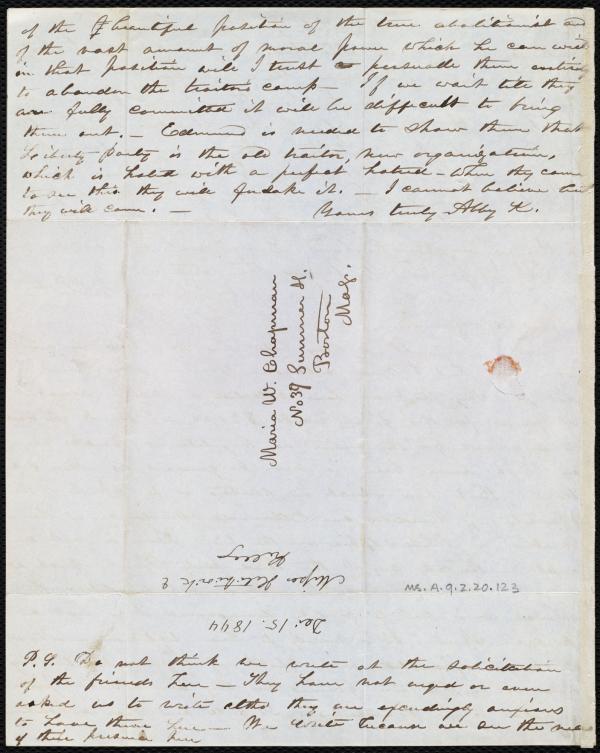 of the beautiful position of the true abolitionist and
of the vast amount of moral power which he can wield
in that position will I trust persuade them entirely
to abandon the traitors camp — If we wait till they
are fully committed it will be difficult to bring
them out. — Edmund is needed to show them that
Liberty Party is the old traitor, new organization,
which is hated with a perfect hatred — When they come
to see this they will forsake it. — I cannot believe but
they will come. — Yours truly Abby K.
Maria W. Chapman
No 39 Summer St.
Boston
Mas.
Misses Hitchcock &
Kelley
Ms. A. 9. 2. 20. 123
Dec. 15. 1844
P.S. Do not think we write at the solicitation
of the friends here — They have not urged or even
asked us to write altho they are exceedingly anxious
to have them here — We write because we see the need
of their presence here